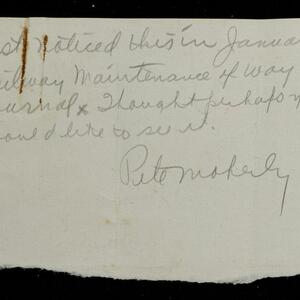 st noticed this in Januar
ailway Maintenance of Way
ournal x Thought perhaps y
ould like to see it.
Pete Moherly